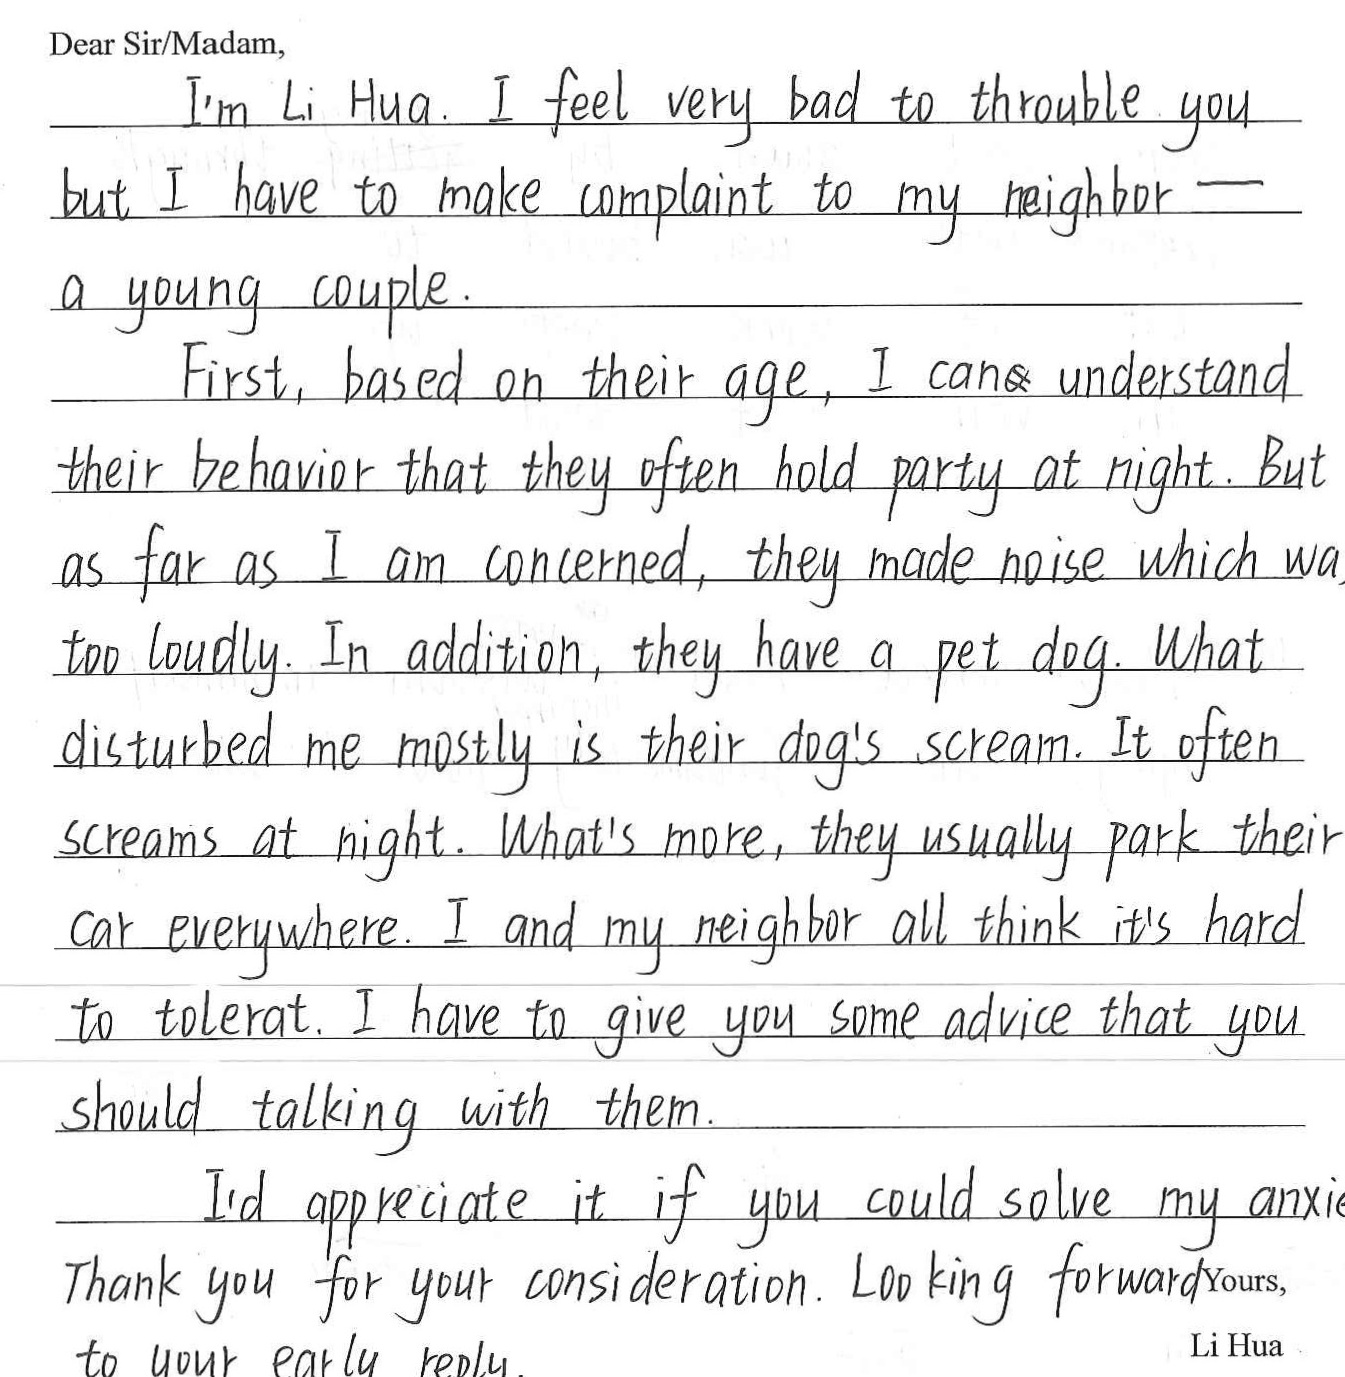 Dear Sir/Madam,
I'm Li Hua. I feel very bad to throuble you
but I have to make complaint to my neighbor —
a young couple.
First, based on their age, I can understand
their behavior that they often hold party at night. But
as far as I am concerned, they made noise which wa
too loudly. In addition, they have a pet dog. What
disturbed me mostly is their dog's scream. It often
screams at night. What's more, they usually park their
car everywhere. I and my neighbor all think it's hard
to tolerat. I have to give you some advice that you
should talking with them.
I'd appreciate it if you could solve my anxie
Thank you for your consideration. Looking forward
Yours,
to your early reply.
Li Hua